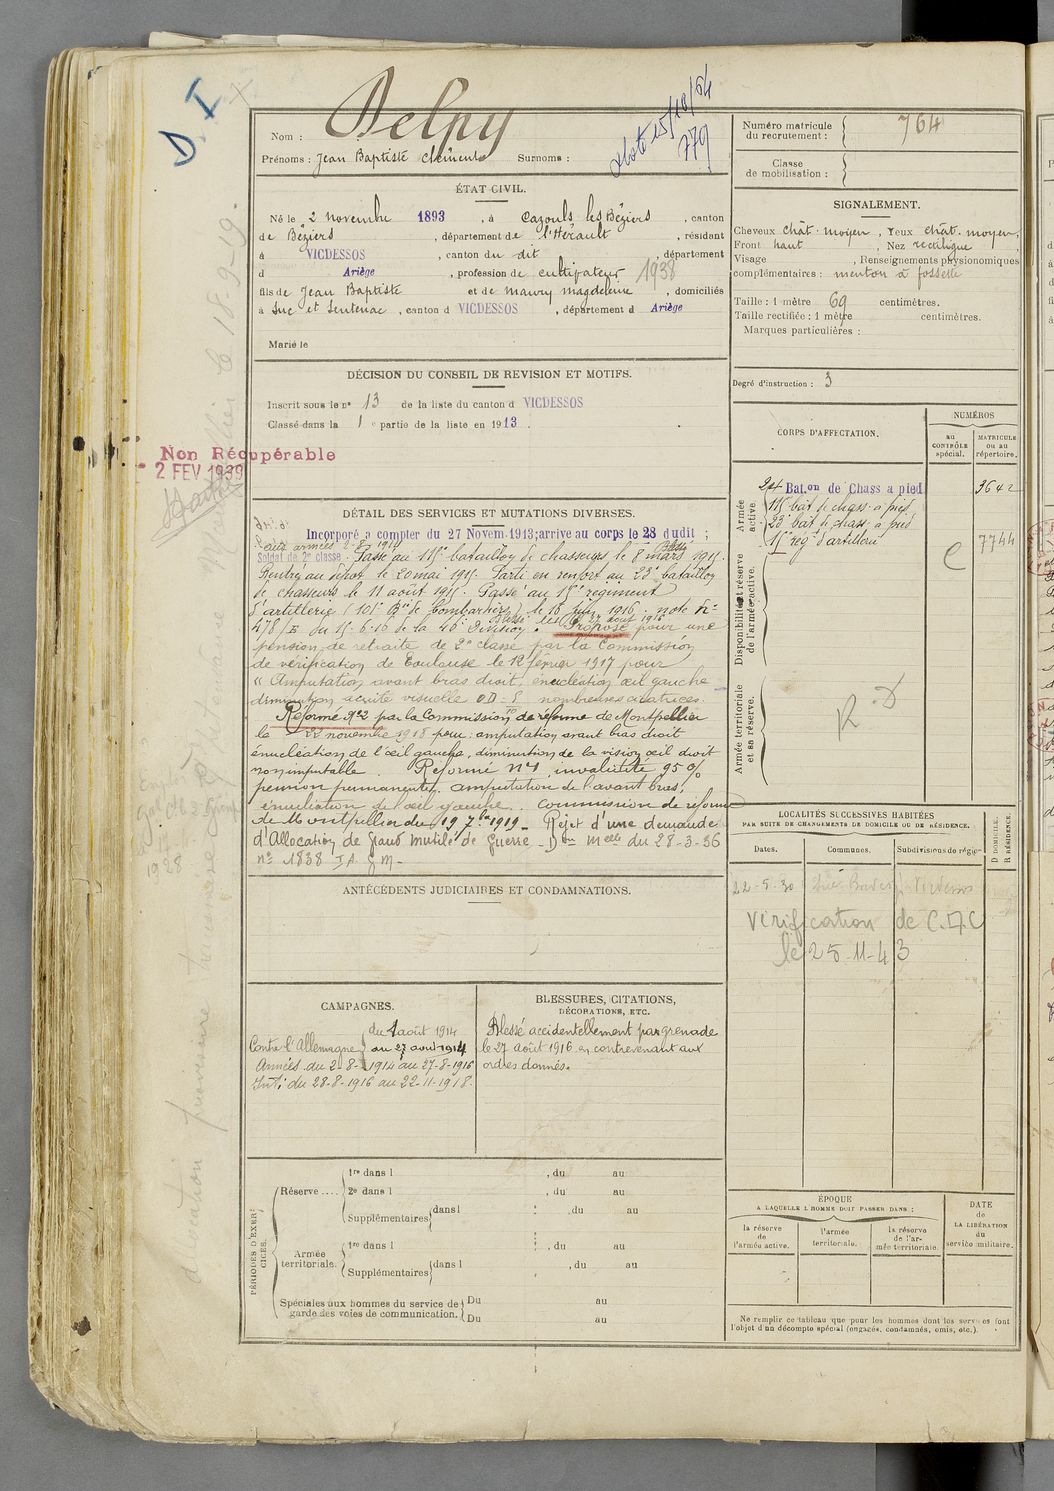 D I
Nom : Delpy
Prénoms : Jean Baptiste Clément Surnoms :
15/10/54
779
Numéro matricule
du recrutement : 764
Classe
de mobilisation :
ÉTAT CIVIL.
Né le 2 novembre 1893, à Cazouls les Béziers, canton
de Béziers, département de l'Hérault, résidant
à VICDESSOS, canton du dit, département
d Ariège, profession de cultivateur 1938
fils de Jean Baptiste et de Maury Magdeleine, domiciliés
à Suc et Sentenac, canton d VICDESSOS, département d Ariège
Marié le
SIGNALEMENT.
Cheveux chât. moyen, Yeux chât. moyen.
Front haut, Nez rectiligne,
Visage , Renseignements physionomiques
complémentaires : menton à fossette
Taille : 1 mètre 69 centimètres.
Taille rectifiée : 1 mètre centimètres.
Marques particulières :
Degré d'instruction : 3
DÉCISION DU CONSEIL DE REVISION ET MOTIFS.
Inscrit sous le n° 13 de la liste du canton d VICDESSOS
Classé dans la 1e partie de la liste en 1913.
Non Récupérable
2 FEV 1939
CORPS D'AFFECTATION.
NUMÉROS
au
CONTRÔLE
spécial.
MATRICULE
ou au
répertoire.
Armée
active.
24 Bat.on de Chass a pied 3642
115 bat de chass. à pied
23e bat de chass. à pied
15e rég. d'artillerie 7744
C
Disponibilité et réserve
de l'armée active.
Armée territoriale
et sa réserve.
R.D
DÉTAIL DES SERVICES ET MUTATIONS DIVERSES.
Incorporé à compter du 27 Novem. 1913; arrive au corps le 28 dudit ;
aux armées 2-8-1914
Soldat de 2e classe. Passé au 115e bataillon de chasseurs le 8 mars 1915.
Rentré au dépôt le 20 mai 1915. Parti en renfort au 23e bataillon
de chasseurs le 11 août 1915. Passé au 15e régiment
d'artillerie (101e Bie de Bombardiers) le 16 juin 1916. note N°
478/E du 15-6-16 de la 46e Division. Blessé le 27 août 1916
Proposé pour une
pension de retraite de 2e classe par la Commission
de vérification de Toulouse le 12 février 1917 pour
"Amputation avant bras droit, énucléation œil gauche
diminution acuité visuelle OD = 5/10 nombreuses cicatrices.
Réformé N°2 par la Commission de réforme de Montpellier
le 22 novembre 1918 pour : amputation avant bras droit
énucléation de l'œil gauche, diminution de la vision œil droit
non imputable. Réformé n°1, invalidité 95 %
pension permanente, amputation de l'avant bras,
énucléation de l'œil gauche. Commission de réforme
de Montpellier du 19 7bre 1919 - Rejet d'une demande
d'Allocation de Grand Mutilé de Guerre - Don Melle du 28-3-36
n° 1838 I.A. G M -
ANTÉCÉDENTS JUDICIAIRES ET CONDAMNATIONS.
LOCALITÉS SUCCESSIVES HABITÉES
PAR SUITE DE CHANGEMENTS DE DOMICILE OU DE RÉSIDENCE.
D DOMICILE.
R RÉSIDENCE.
Dates. Communes. Subdivisions de région
22-5-30 Vicdessos
Vérification de C.A.C
le 25-11-43
CAMPAGNES.
Contre l'Allemagne du 2 août 1914
au 27 août 1914
Armées du 2-8-1914 au 27-8-1916
Int; du 28-8-1916 au 22-11-1918.
BLESSURES, CITATIONS,
DÉCORATIONS, ETC.
Blessé accidentellement par grenade
le 27 août 1916 en contrevenant aux
ordres donnés.
PÉRIODES D'EXERCICES.
Réserve .... 1re dans l , du au
2e dans l , du au
Supplémentaires dans l , du au
Armée
territoriale. 1re dans l , du au
Supplémentaires dans l , du au
Spéciales aux hommes du service de
garde des voies de communication. Du au
Du au
ÉPOQUE
A LAQUELLE L'HOMME DOIT PASSER DANS :
la réserve
de
l'armée active.
l'armée
territoriale.
la réserve
de l'ar-
mée territoriale.
DATE
de
LA LIBÉRATION
du
service militaire.
Ne remplir ce tableau que pour les hommes dont les services font
l'objet d'un décompte spécial (engagés, condamnés, omis, etc.).